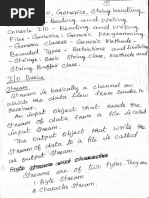 I/O, Generics, String handling
Reading and Writing
Console I/O - Reading and Writing
Files - Generics: Generic Programming
- Generic classes - Generic Methods -
Bounded Types - Restrictions and
- Strings: Basic String class, Methods
String Buffer Class.
I/O Basics
Stream
Stream is basically a channel on
which the data flow from sender to
receiver.
An input object that reads the
stream of data from a file is called
The output object that write the
stream of data to a file is called
an output stream.
Byte streams and character
Streams are of two types. They are
1. Byte Stream
2. Character Stream